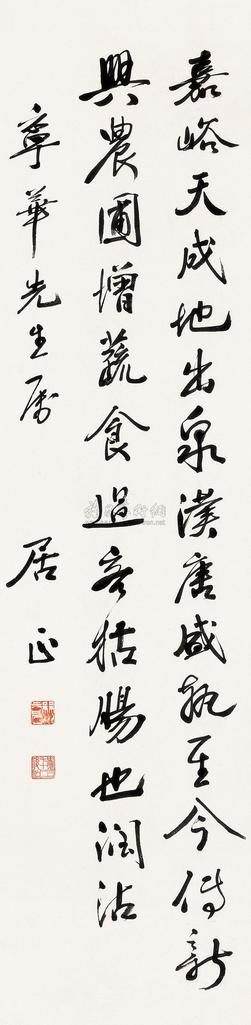 嘉峪天成地出泉漢唐盛軌至今傳新
興農圃增蔬食過客枯腸也潤沾
章華先生属
居正